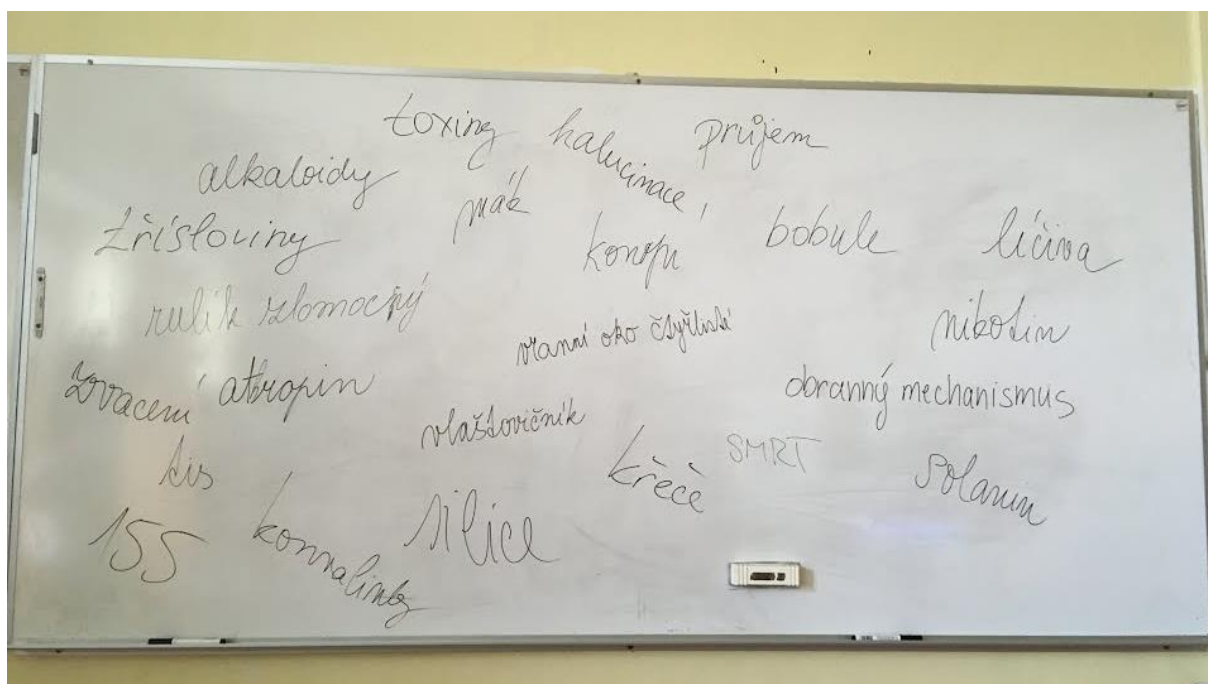 toxiny halucinace průjem
alkaloidy mák
třísloviny konopí bobule léčiva
rulík zlomocný vraní oko čtyřlisté nikotin
zvracení atropin obranný mechanismus
vlaštovičník
tis křeče SMRT solanin
155 konvalinky silice